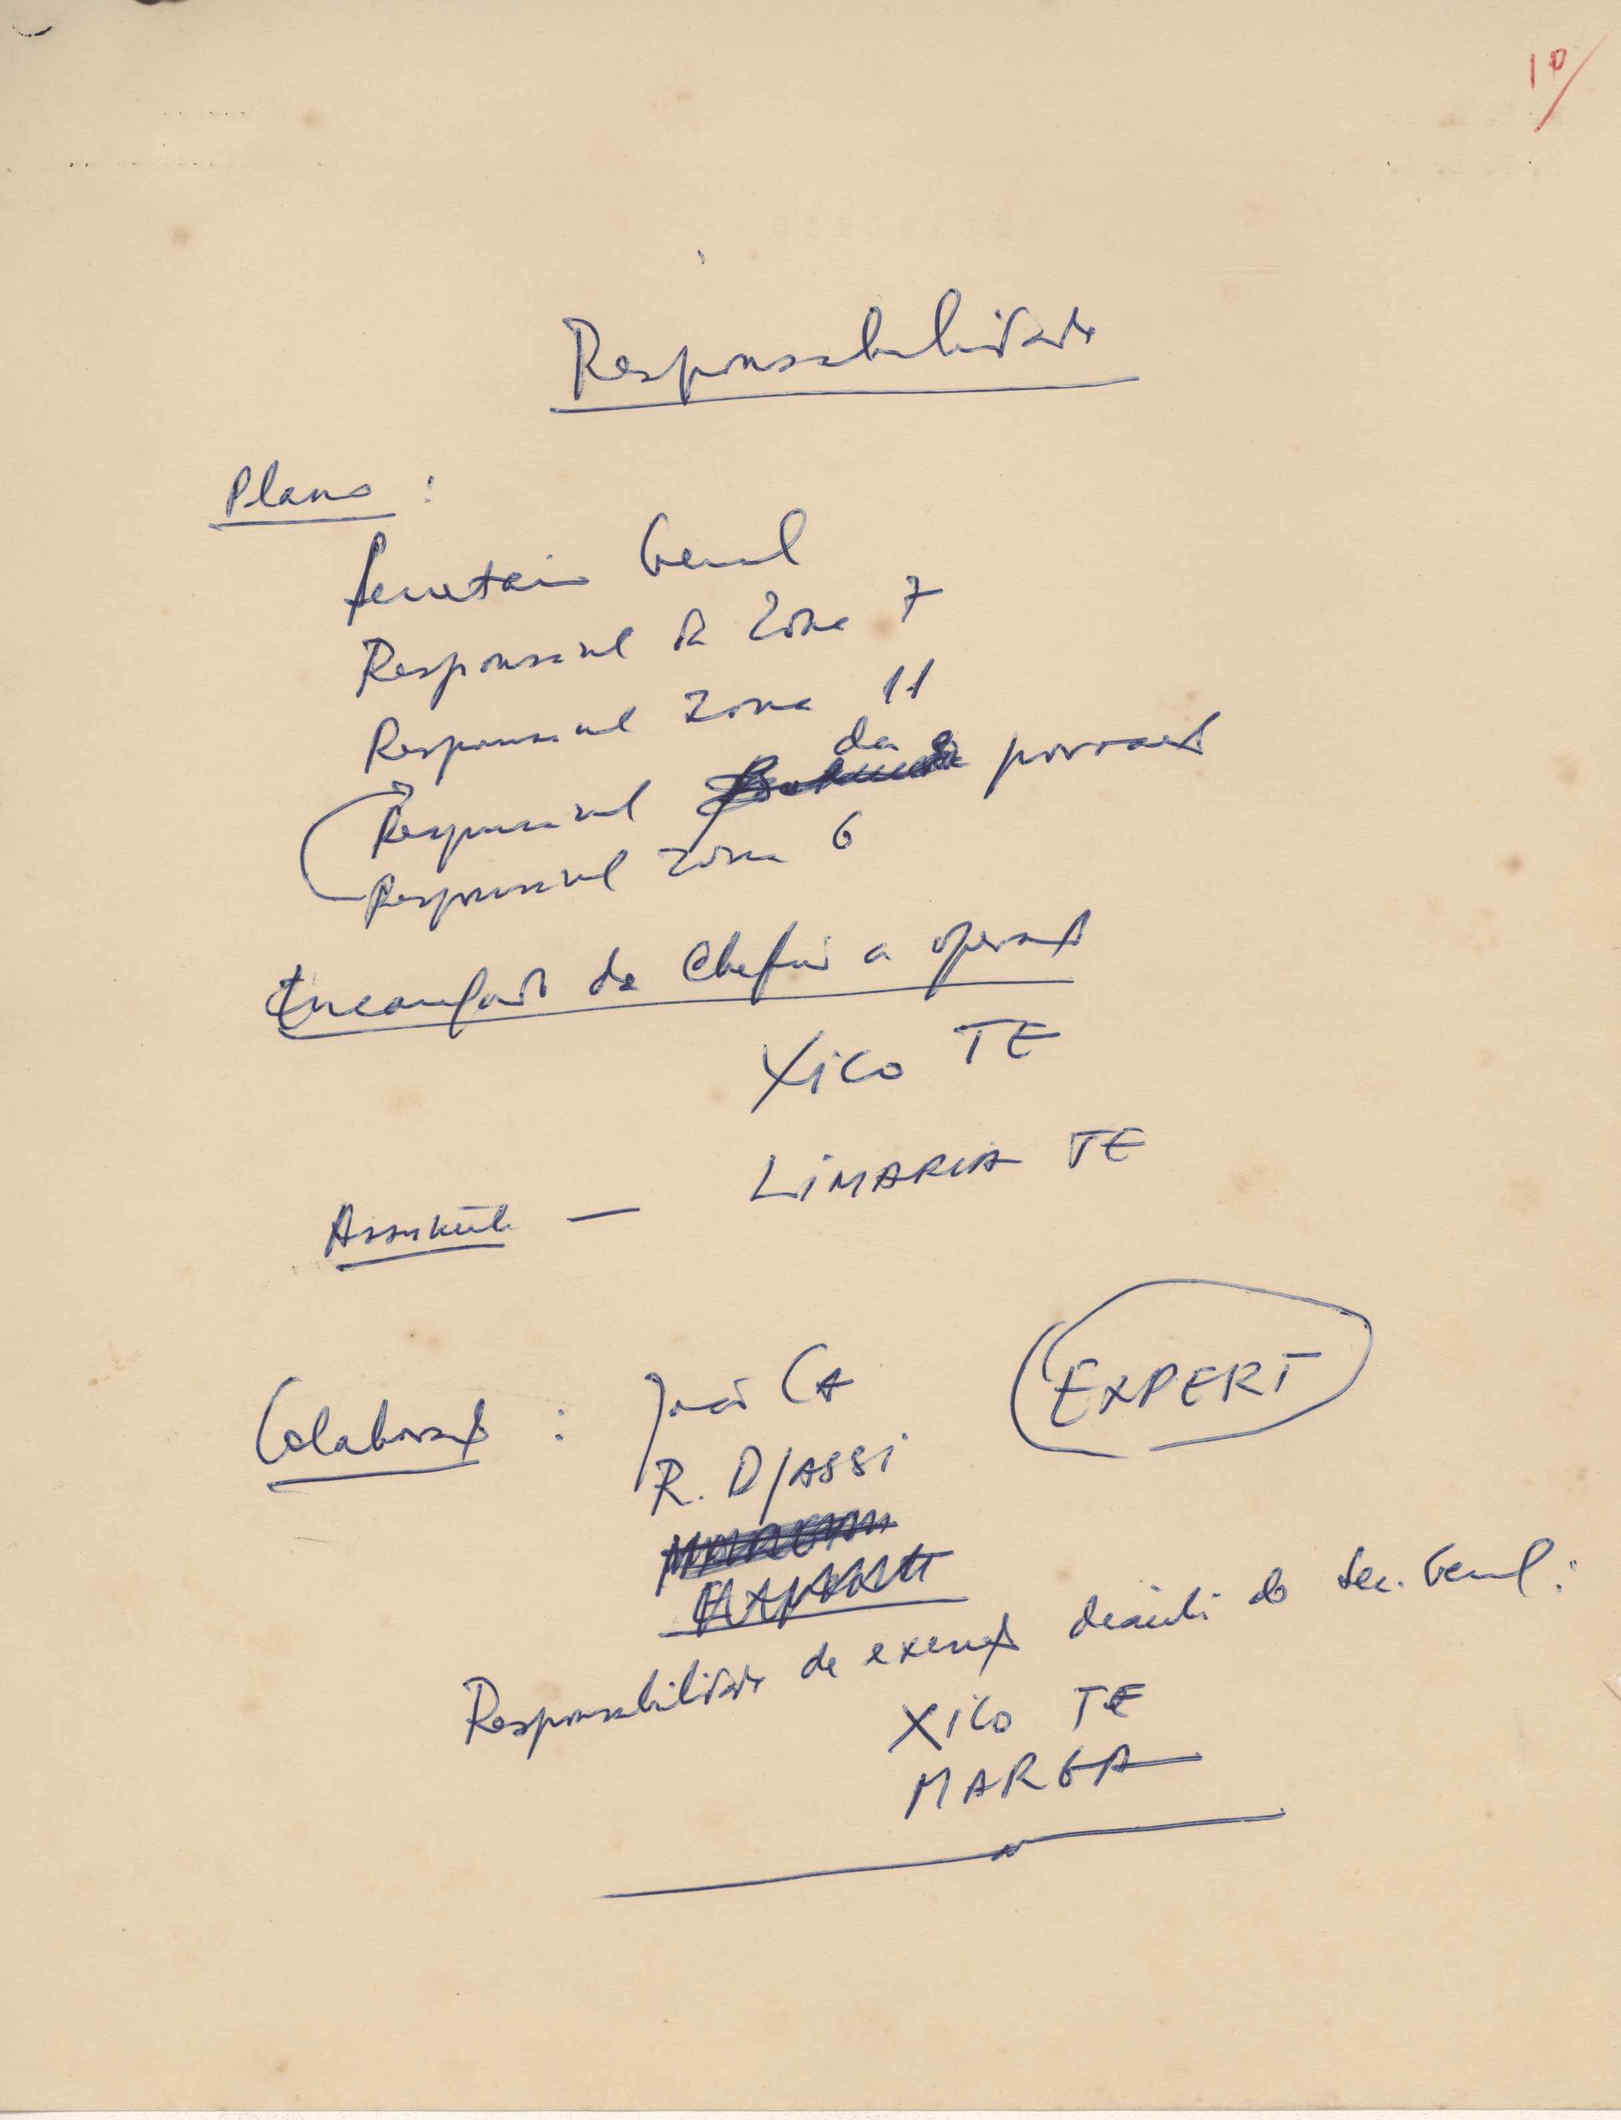 10/
Responsabilidade
Plano :
Secretario Geral
Responsavel da Zona 7
Responsavel Zona 11
Responsavel da
Responsavel Zona 6
Encarregado da Chefia a operação
XICO TE
Assistente — LIMARIA TE
Colaboração : João CA EXPERT
R. DJASSI
Responsabilidade de execução decisão do Sec. Geral :
XICO TE
MARGA